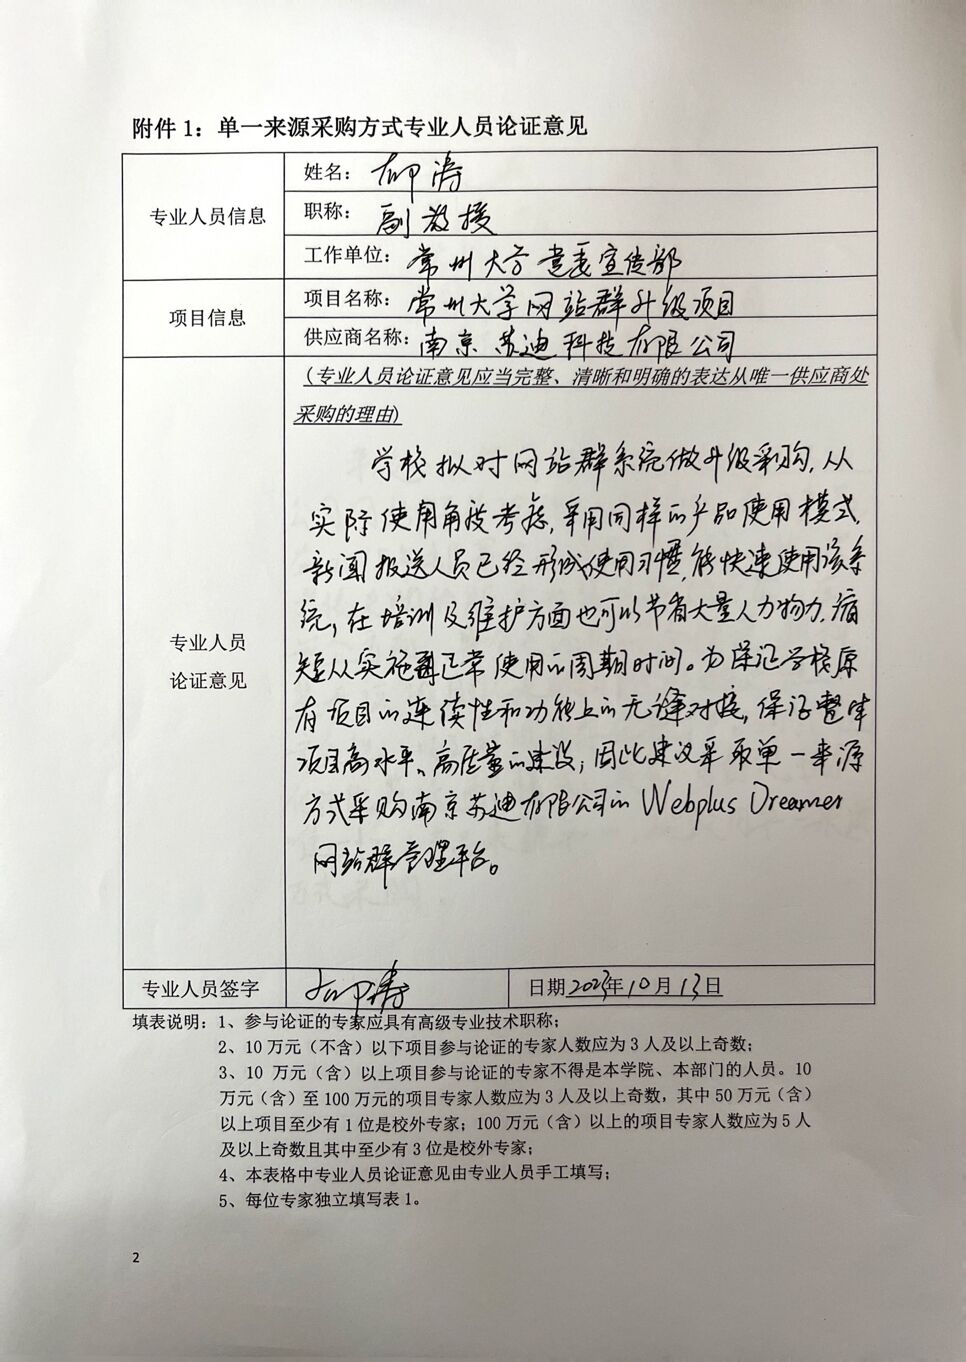 附件 1：单一来源采购方式专业人员论证意见
专业人员信息
姓名：柳涛
职称：副教授
工作单位：常州大学党委宣传部
项目信息
项目名称：常州大学网站群升级项目
供应商名称：南京苏迪科技有限公司
专业人员
论证意见
(专业人员论证意见应当完整、清晰和明确的表达从唯一供应商处
采购的理由)
学校拟对网站群系统做升级采购，从
实际使用角度考虑，采用同样的产品使用模式，
新闻报送人员已经形成使用习惯，能快速使用该系
统，在培训及维护方面也可以节省大量人力物力，缩
短从实施到正常使用的周期时间。为保证学校原
有项目的连续性和功能上的无缝对接，保证整体
项目高水平、高质量的建设，因此建议采取单一来源
方式采购南京苏迪有限公司的 Webplus Dreamer
网站群管理平台。
专业人员签字 柳涛 日期 2023年10月13日
填表说明：1、参与论证的专家应具有高级专业技术职称；
2、10 万元（不含）以下项目参与论证的专家人数应为 3 人及以上奇数；
3、10 万元（含）以上项目参与论证的专家不得是本学院、本部门的人员。10
万元（含）至 100 万元的项目专家人数应为 3 人及以上奇数，其中 50 万元（含）
以上项目至少有 1 位是校外专家；100 万元（含）以上的项目专家人数应为 5 人
及以上奇数且其中至少有 3 位是校外专家；
4、本表格中专业人员论证意见由专业人员手工填写；
5、每位专家独立填写表 1。
2